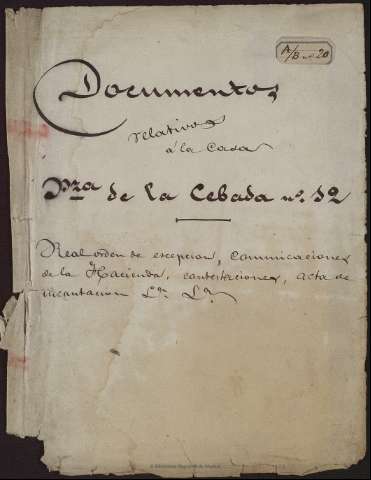 A/B nº 20
Documentos
relativos
á la Casa
Pza de la Cebada nº 12
Real orden de escepcion, comunicaciones
de la Hacienda, contestaciones, acta de
incautacion